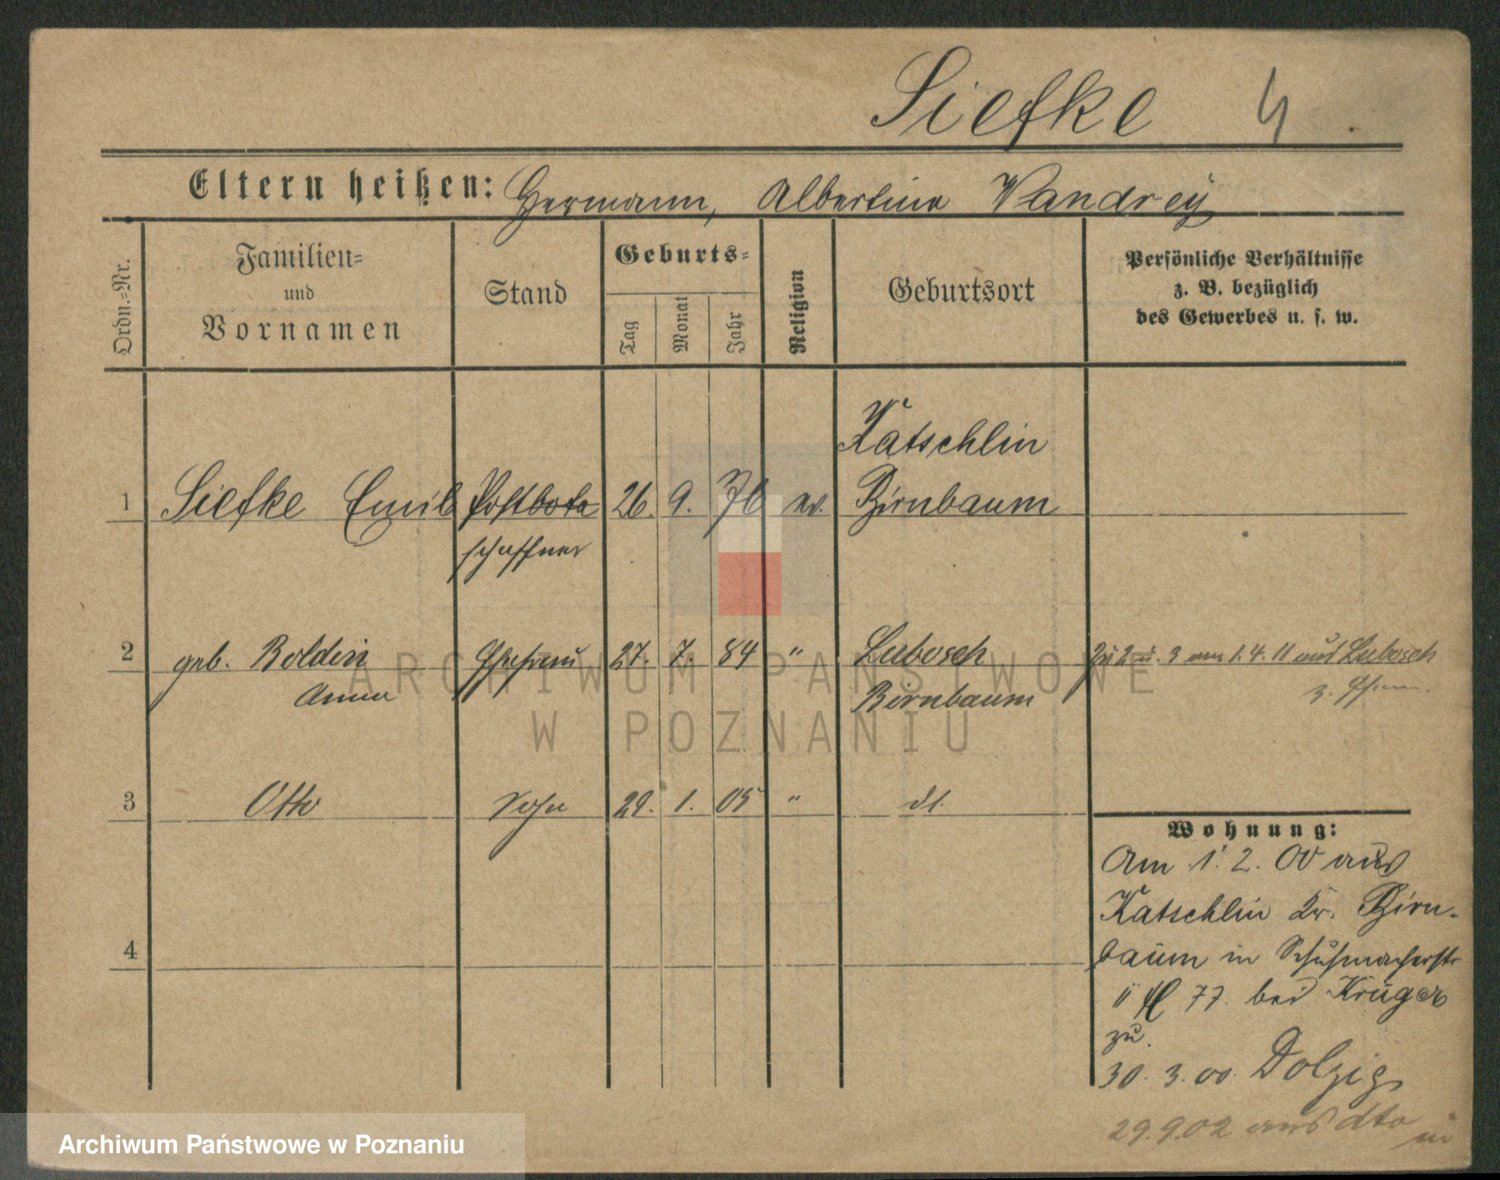 Siefke 4
Eltern heißen: Hermann, Albertine Wandrey
Ordn.-Nr.
Familien-
und
Vornamen
Stand
Geburts-
Tag
Monat
Jahr
Religion
Geburtsort
Persönliche Verhältnisse
z. B. bezüglich
des Gewerbes u. s. w.
Katschlin
1 Siefke Emil Postbote 26. 9. 76 ev. Birnbaum
schaffner
2 geb. Boldin Ehefrau 27. 7. 84 " Lubosch Zu 2 u. 3 am 1.4.11 aus Lubosch
Anna Birnbaum
3 Otto Sohn 29. 1. 05 " dt.
4
Wohnung:
Am 1. 2. 00 aus
Katschlin Kr. Birn-
baum in Schuhmacherstr
11 77. bei Krüger
zu.
30. 3. 00. Dolzig
29.9.02 aus dto in
ARCHIWUM PAŃSTWOWE
W POZNANIU
Archiwum Państwowe w Poznaniu